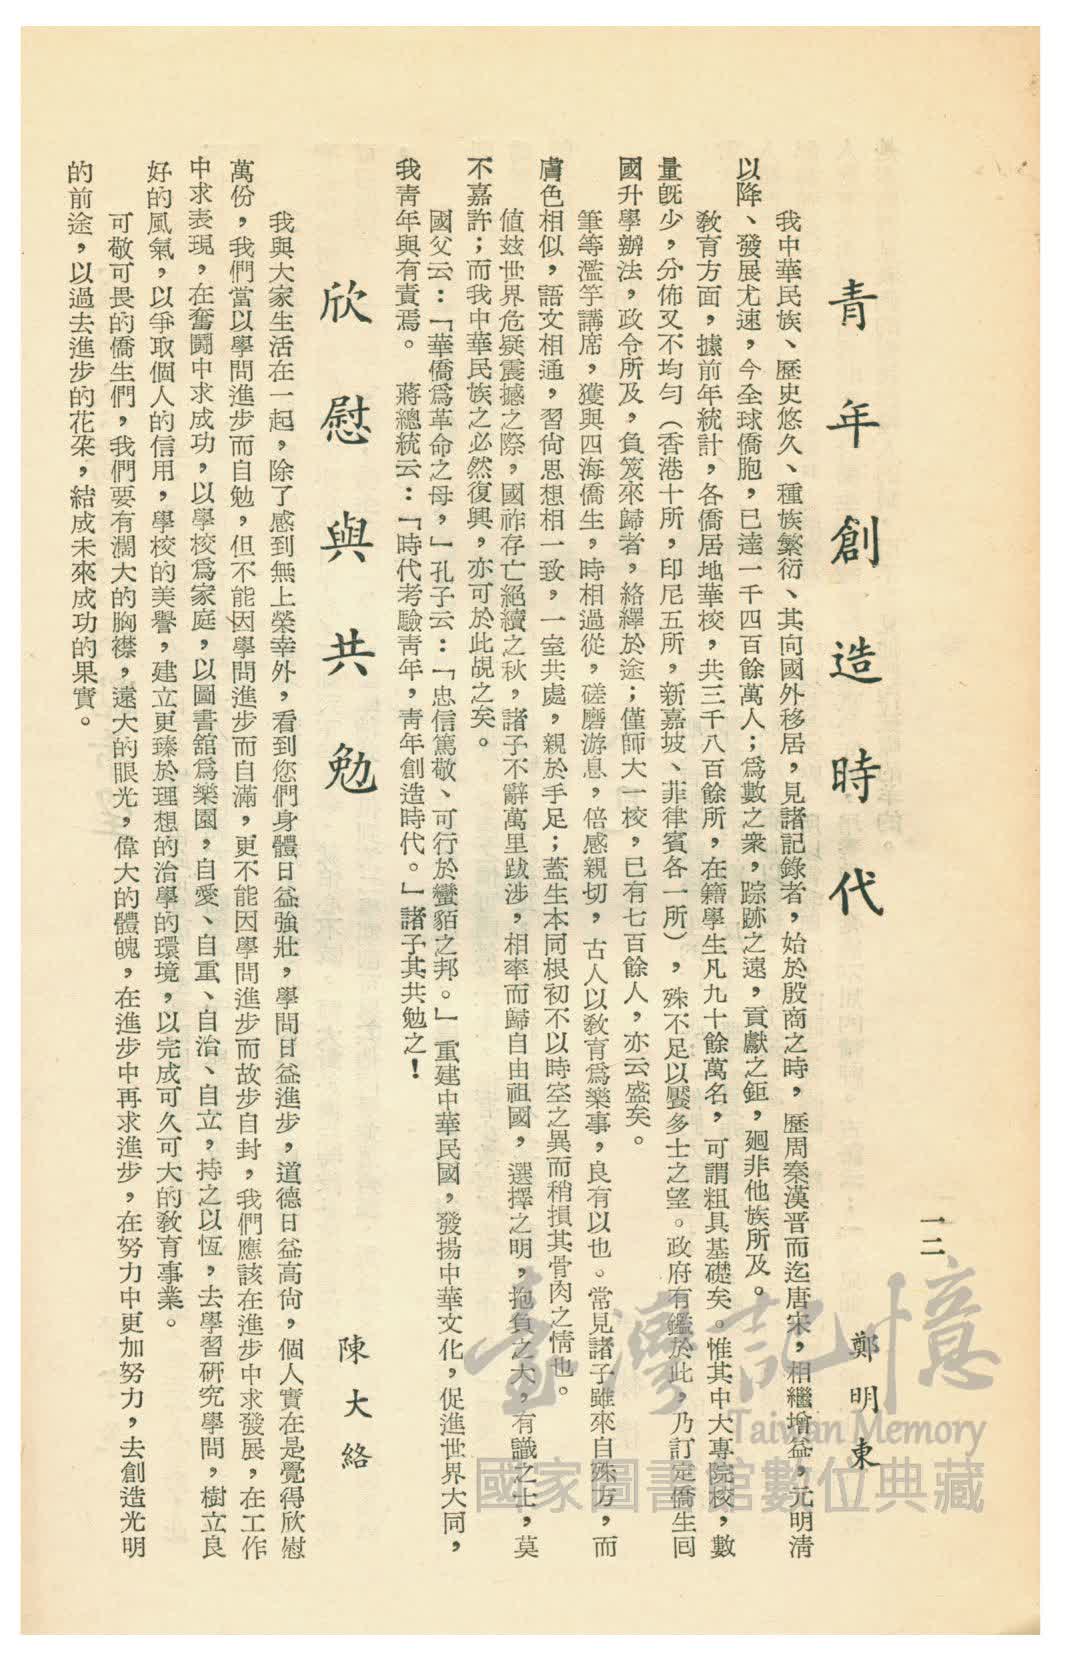 一二
青年創造時代
鄭明東
我中華民族、歷史悠久、種族繁衍、其向國外移居，見諸記錄者，始於殷商之時，歷周秦漢晋而迄唐宋，相繼增益，元明清
以降、發展尤速，今全球僑胞，已達一千四百餘萬人；爲數之衆，踪跡之遠，貢獻之鉅，廻非他族所及。
教育方面，據前年統計，各僑居地華校，共三千八百餘所，在籍學生凡九十餘萬名，可謂粗具基礎矣。惟其中大專院校，數
量旣少，分佈又不均勻（香港十所，印尼五所，新嘉坡、菲律賓各一所），殊不足以饜多士之望。政府有鑑於此，乃訂定僑生囘
國升學辦法，政令所及，負笈來歸者，絡繹於途；僅師大一校，已有七百餘人，亦云盛矣。
筆等濫竽講席，獲與四海僑生，時相過從，磋磨游息，倍感親切，古人以教育爲樂事，良有以也。常見諸子雖來自殊方，而
膚色相似，語文相通，習尙思想相一致，一室共處，親於手足；蓋生本同根初不以時空之異而稍損其骨肉之情也。
値玆世界危疑震撼之際，國祚存亡絕續之秋，諸子不辭萬里跋涉，相率而歸自由祖國，選擇之明，抱負之大，有識之士，莫
不嘉許；而我中華民族之必然復興，亦可於此覘之矣。
國父云：「華僑爲革命之母，」孔子云：「忠信篤敬、可行於蠻貊之邦。」重建中華民國，發揚中華文化，促進世界大同，
我靑年與有責焉。　蔣總統云：「時代考驗靑年，靑年創造時代。」諸子其共勉之！
欣慰與共勉
陳大絡
我與大家生活在一起，除了感到無上榮幸外，看到您們身體日益強壯，學問日益進步，道德日益高尙，個人實在是覺得欣慰
萬份，我們當以學問進步而自勉，但不能因學問進步而自滿，更不能因學問進步而故步自封，我們應該在進步中求發展，在工作
中求表現，在奮鬪中求成功，以學校爲家庭，以圖書舘爲樂園，自愛、自重、自治、自立，持之以恆，去學習研究學問，樹立良
好的風氣，以爭取個人的信用，學校的美譽，建立更臻於理想的治學的環境，以完成可久可大的敎育事業。
可敬可畏的僑生們，我們要有濶大的胸襟，遠大的眼光，偉大的體魄，在進步中再求進步，在努力中更加努力，去創造光明
的前途，以過去進步的花朶，結成未來成功的果實。
臺灣記憶
Taiwan Memory
國家圖書館數位典藏